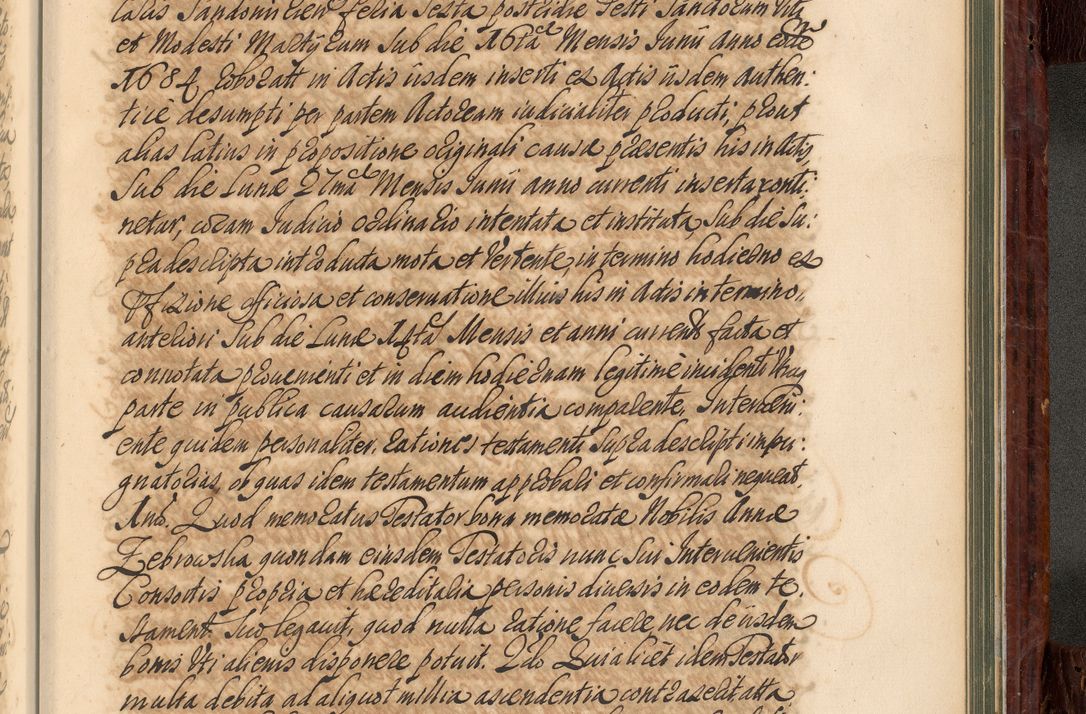 et Modesti Martyrum Sub die 16ta Mensis Junii Anno
1684 roboratt in Actis iisdem inserti ex Actis iisdem authen:
tice desumpti per partem Actoream iudicialiter producti, prout
alias latius in propositione originali causæ præsentis his in Actis
Sub die Lunæ 27ma Mensis Junii anno currenti inserta, conti:
netur, coram Judicio ordinario intentata et instituta Sub die Su:
pradescripta introducta mota et Vertente, in termino hodierno ex
officiosa et conservatione illius his in Actis in termino,
anteliori Sub die Lunæ Mensis et anni current facta et
connotata provenienti et in diem hodiernam legitime incidenti
parte in publica causarum audientia comparente, Interveni:
ente quidem personaliter, rationes testamenti Supradescripti impu:
gnatorias, ob quas idem testamentum approbari et confirmari nequeat.
Imo. Quod memoratus Testator bona memoratæ Nobilis Annæ
Zebrowska quondam eiusdem Testatoris nunc sui Intervenientis
Consortis propria et hæreditaria personis diversis in eodem te,
stament suo legavit, quod nulla ratione facere nec de iisdem
bonis Uti alienis disponere potuit. 2do Quia licet idem Testator
multa debita ad aliquot millia ascendentia